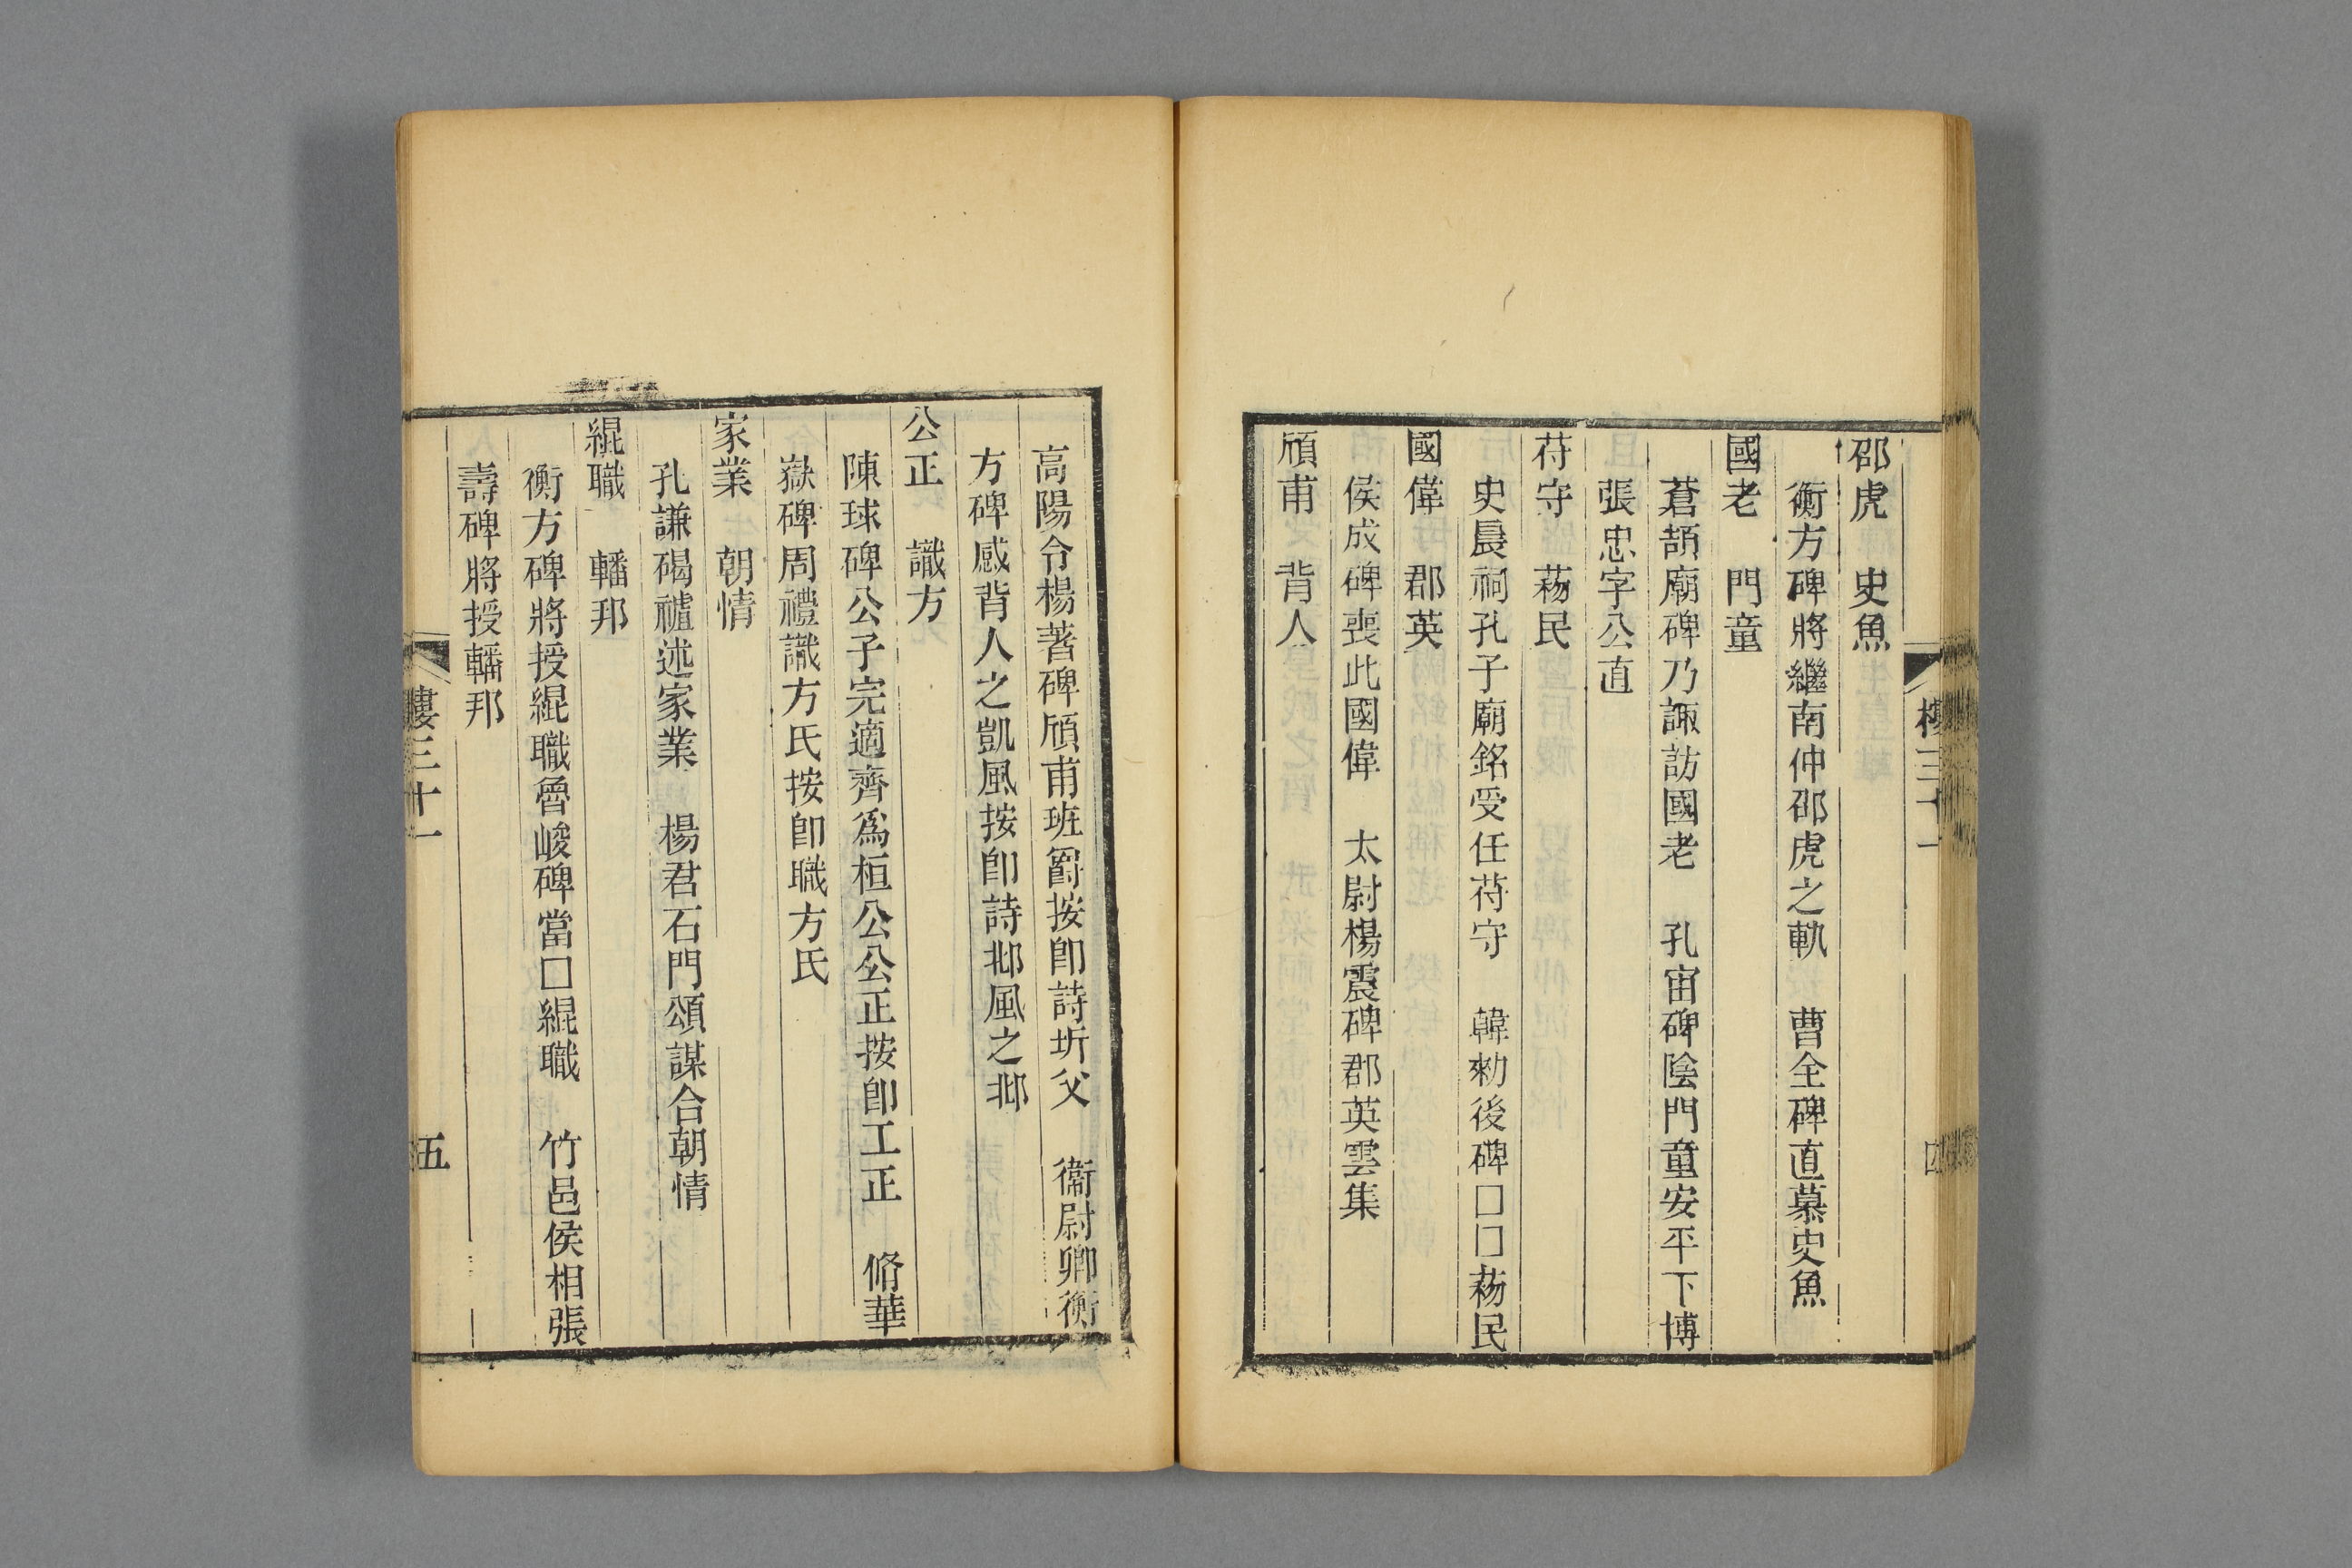 邵虎　史魚
衡方碑將繼南仲邵虎之軌　曹全碑直慕史魚
國老　門童
蒼頡廟碑乃諏訪國老　孔宙碑陰門童安平下博
張忠字公直
苻守　蒤民
史晨祠孔子廟銘受任苻守　韓勑後碑□□蒤民
國偉　郡英
侯成碑喪此國偉　太尉楊震碑郡英雲集
頎甫　背人
高陽令楊著碑頎甫班爵按卽詩圻父　衞尉卿衡
方碑感背人之凱風按卽詩邶風之邶
公正　識方
陳球碑公子完適齊爲桓公公正按卽工正　脩華
嶽碑周禮識方氏按卽職方氏
家業　朝情
孔謙碣禠述家業　楊君石門頌謀合朝情
緄職　轓邦
衡方碑將授緄職魯峻碑當□緄職　竹邑侯相張
壽碑將授轓邦
三十一
五